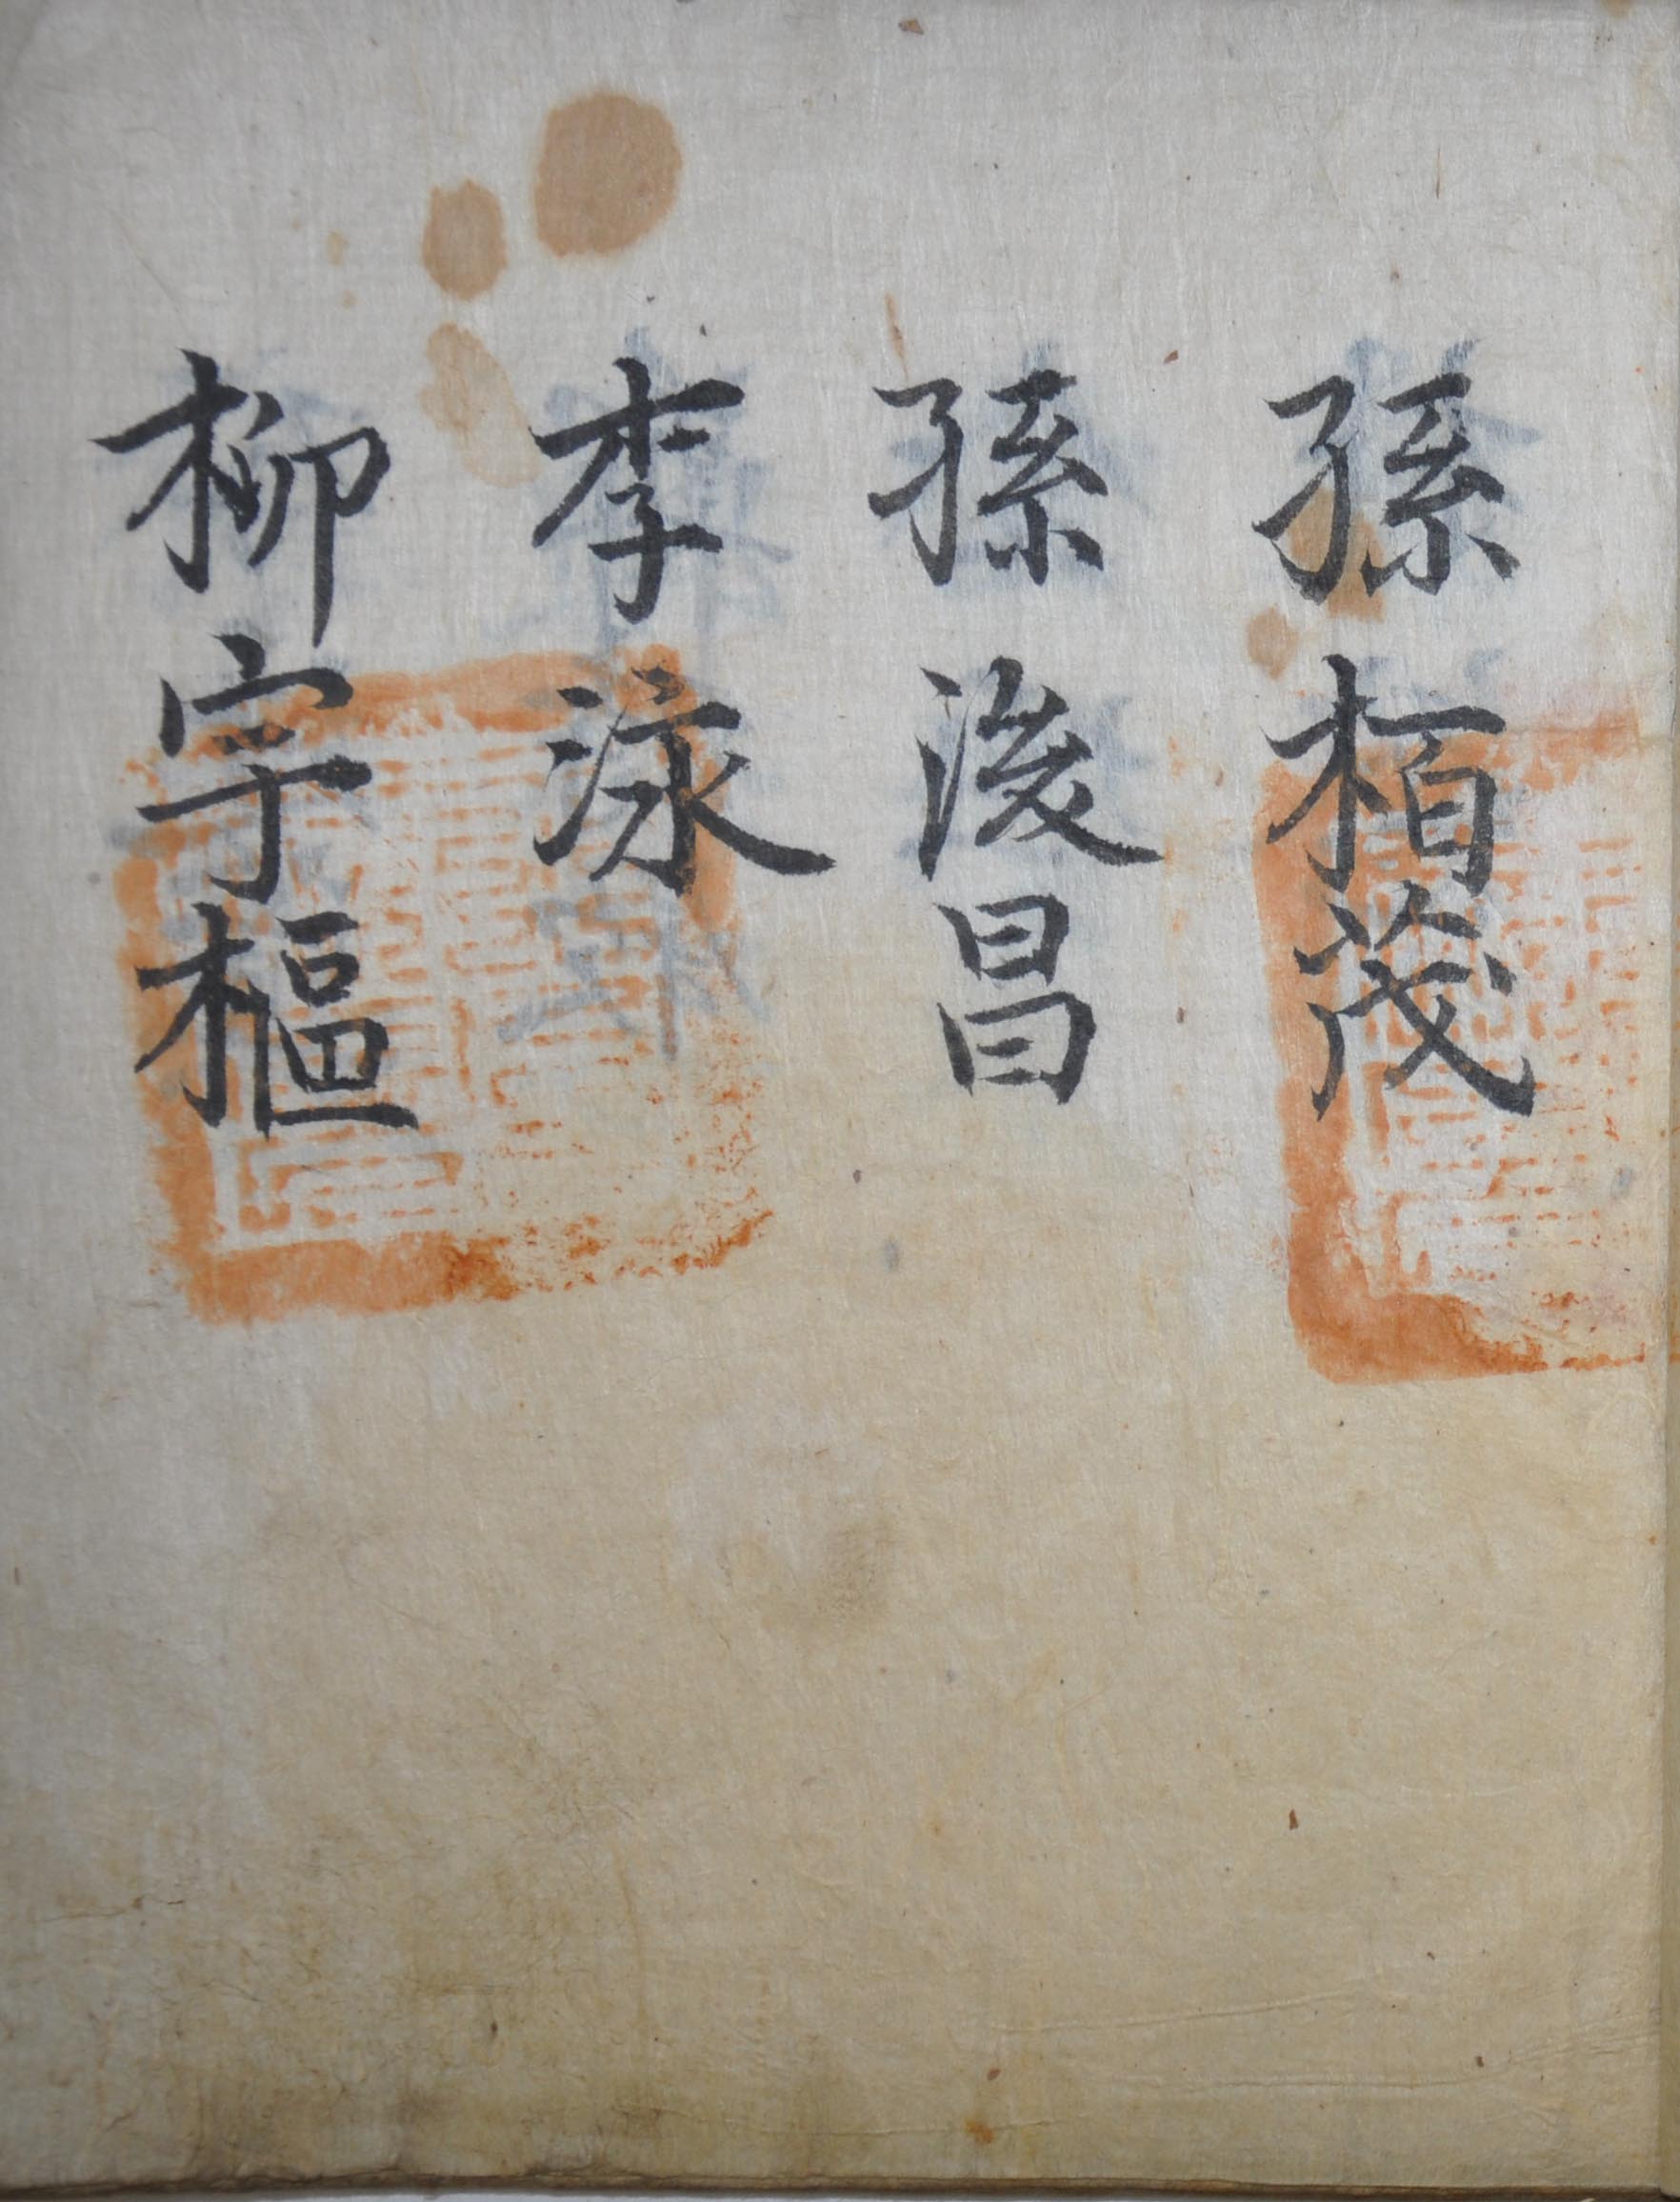 孫栢茂
孫浚昌
李泳
柳宇樞